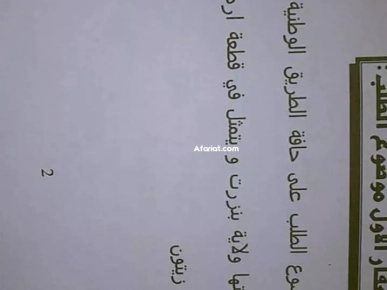 الاول موضوع الطلب :
الطلب على حافة الطريق الوطنية
ولاية بنزرت و يتمثل في قطعة
زيتون
2
Afariat.com